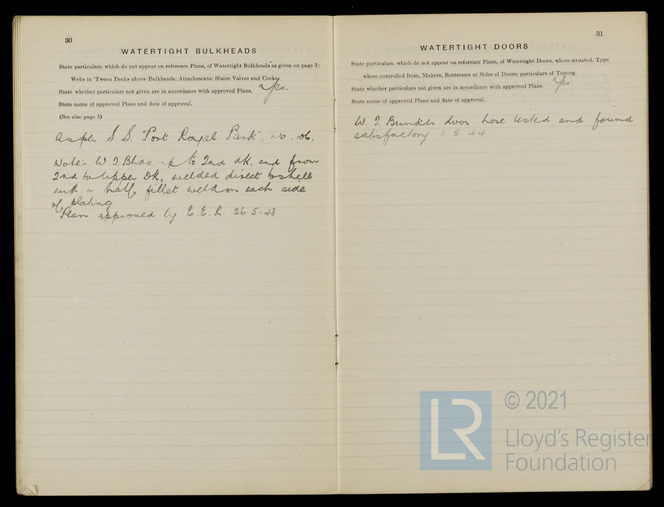 30
WATERTIGHT BULKHEADS
State particulars, which do not appear on reference Plans, of Watertight Bulkheads as given on page 3;
Webs in 'Tween Decks above Bulkheads; Attachments; Sluice Valves and Cocks.
State whether particulars not given are in accordance with approved Plans. Yes.
State name of approved Plans and date of approval.
(See also page 5)
As per S.S. "Port Royal Park", No. 106.
Note:- W.T. Bhds up to 2nd dk, and from
2nd to Upper Dk, welded direct to shell
with a half fillet weld on each side
of plating
Plan approved by E.E.R. 26-5-43
31
WATERTIGHT DOORS
State particulars, which do not appear on reference Plans, of Watertight Doors, where situated, Type
where controlled from, Makers, Buttresses at Sides of Doors; particulars of Testing.
State whether particulars not given are in accordance with approved Plans. Yes
State name of approved Plans and date of approval.
W.T. Bunker doors hose tested and found
satisfactory 1.5.44
LR
© 2021
Lloyd's Register
Foundation